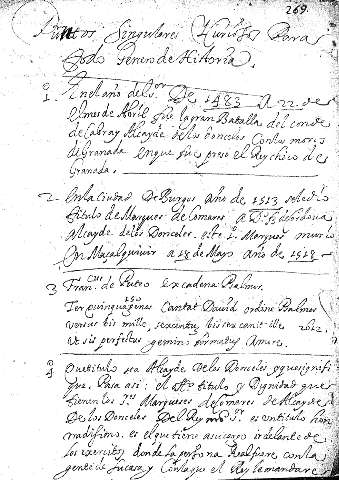 269.
Puntos Singulares Curiosos Para
todo Genero de Historia.
1. En el año del sor De 1483 A 22 de
el mes de Abril fue la gran Batalla del conde
de Cabra y Alcayde de los donceles Con los moros
de Granada en que fue preso el Rey chico de
Granada.
2 En la Ciudad De Burgos año de 1513 se le dio
titulo de Marques de Comares a Dn. fdo de Cordoua
Alcayde de los Donceles. este 1.º Marques murio
en Maçalquivir a 18 de Mayo año de 1518
3 Fran.cus de Puteo ex cadena Psalmor.
Ter quinquagenos Cantat David ordine Psalmos
versus bis mille, sexcentos bis sex canit ille 2612.
Ut sis perfectus gemino firmatus Amore.
4 Que titulo sea Alcayde de los Donceles y que signifi
que. Pasa asi: el titulo y Dignidad que
tienen los Sres Marqueses de Comares de Alcayde
De los Donceles Del Rey nro Sr. es un titulo hon
rradissimo. es el que tiene a su cargo ir delante de
los exercitos donde la persona Real fuere con la
gente de su casa y Con la que el Rey le mandare